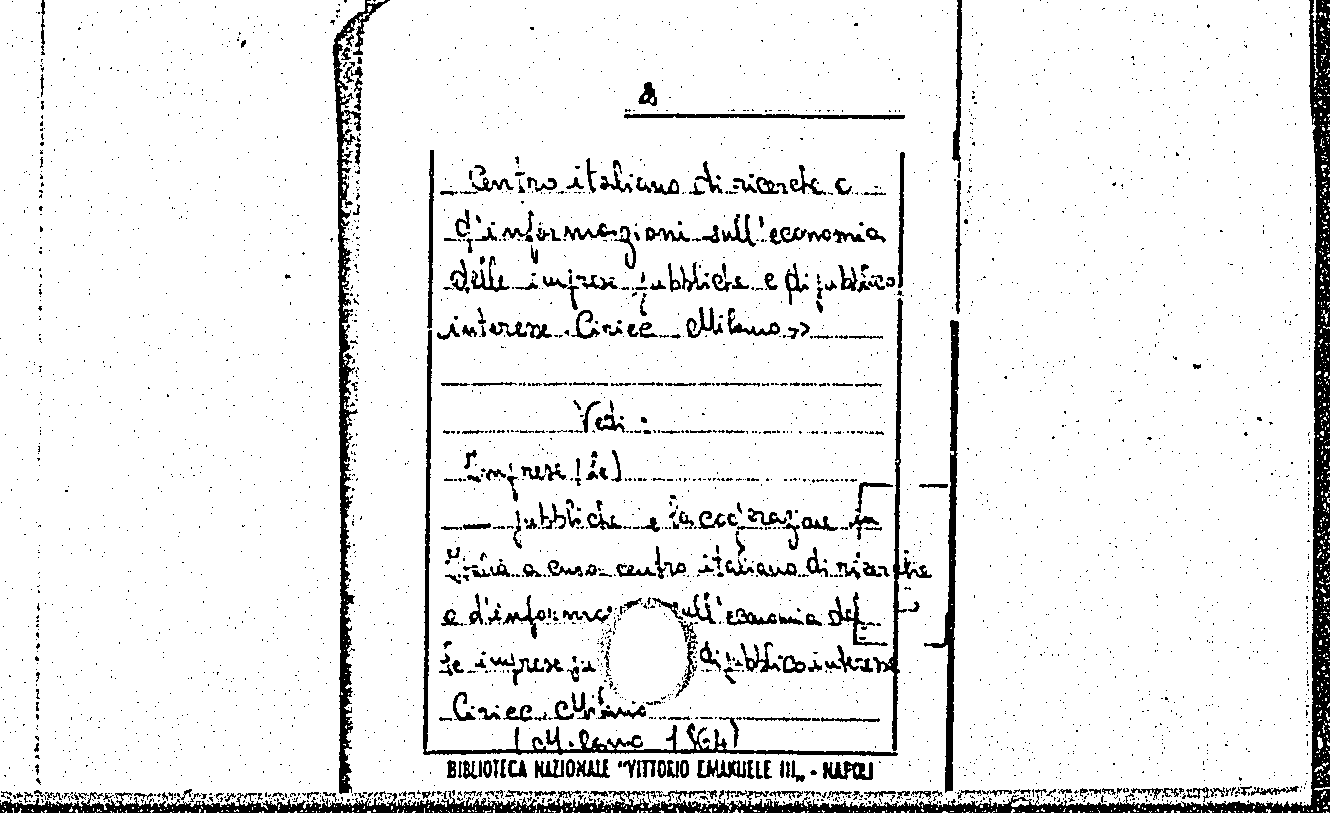 Centro italiano di ricerche e
d'informazioni sull'economia
delle imprese pubbliche e di pubblico
interesse Ciriec Milano >>
Vedi :
Imprese (Le)
— pubbliche e la cooperazione in
Italia a cura centro italiano di ricerche
e d'informa sull'economia del
le imprese pu di pubblico interesse
Ciriec. Milano
(Milano 1964)
BIBLIOTECA NAZIONALE "VITTORIO EMANUELE III„ - NAPOLI